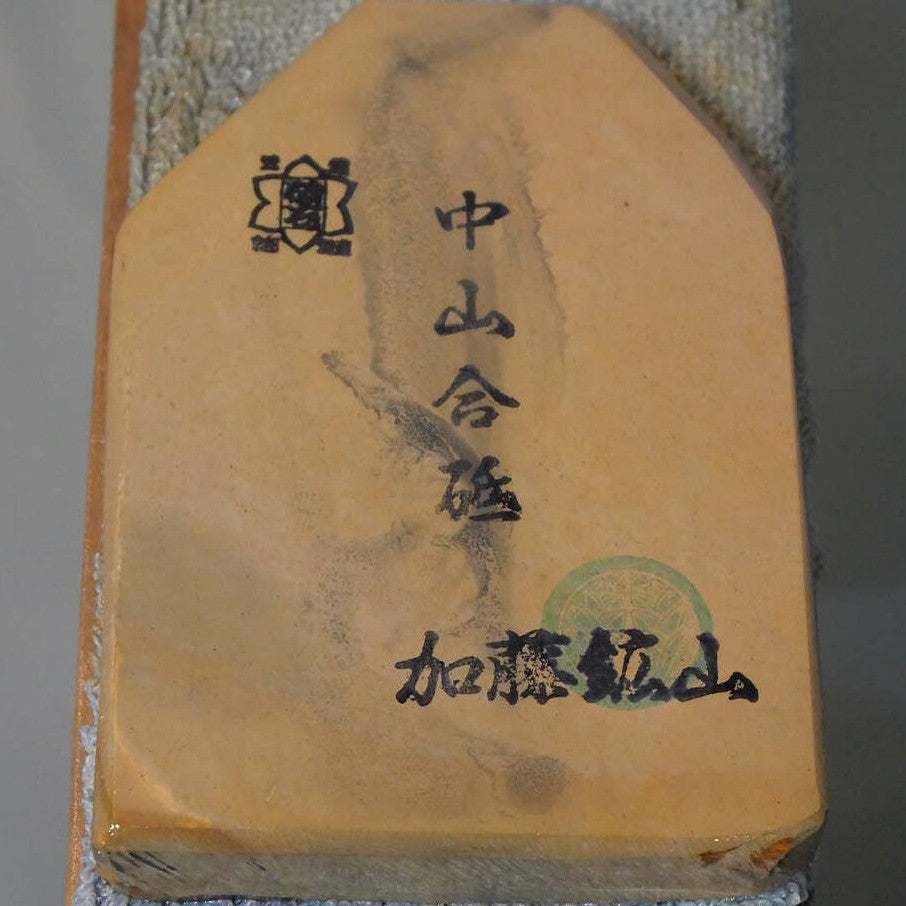 中山合砥
加藤鉱山